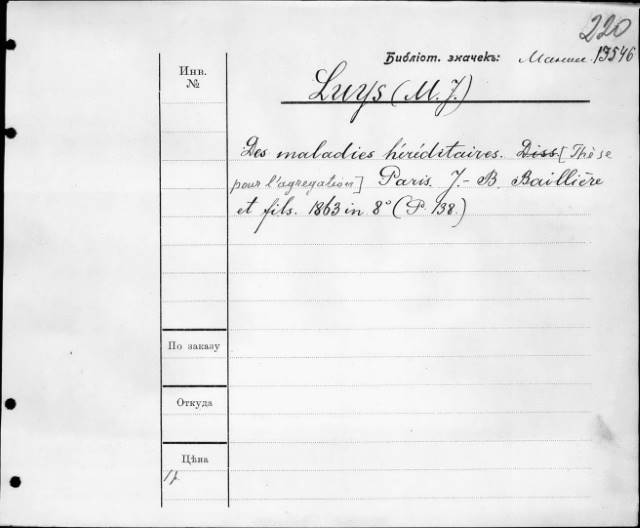 220
Библіот. значекъ: 13546
Инв.
№
Luys (M. J.)
Des maladies héréditaires. Diss. [Thèse
pour l'agregation] Paris. J.-B. Baillière
et fils. 1863 in 8° (P. 138.)
По заказу
Откуда
Цѣна